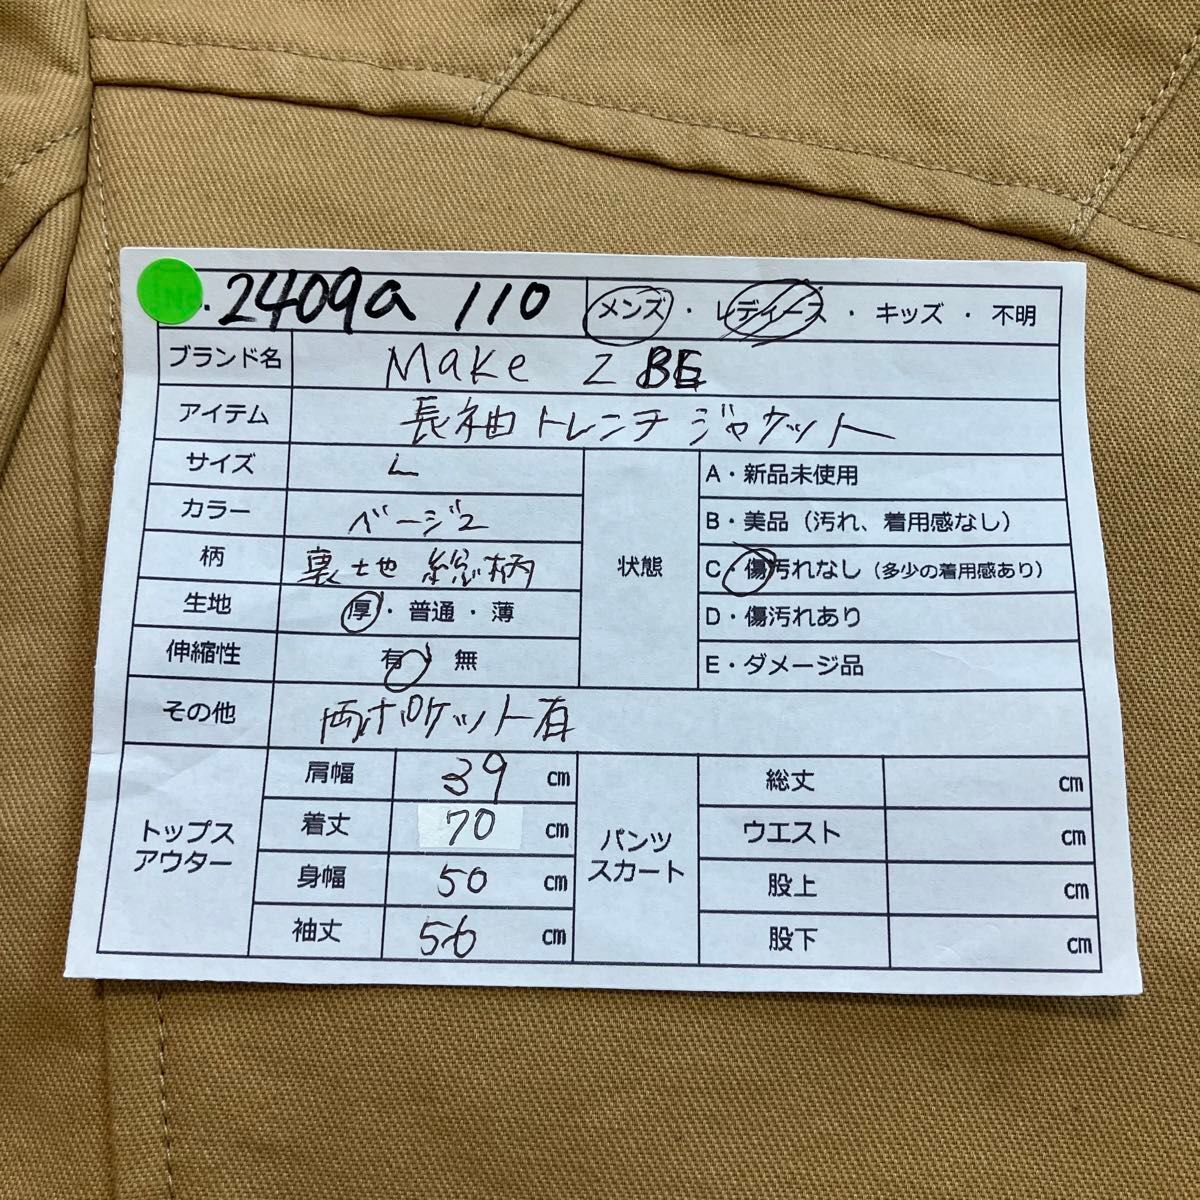 No. 2409a 110 メンズ ・ レディース ・ キッズ ・ 不明
ブランド名 Make 2 BE
アイテム 長袖トレンチジャケット
サイズ L
カラー ベージュ
柄 裏地 総柄
生地 厚 ・ 普通 ・ 薄
伸縮性 有 ・ 無
状態
A・新品未使用
B・美品（汚れ、着用感なし）
C・傷汚れなし（多少の着用感あり）
D・傷汚れあり
E・ダメージ品
その他 両ポケット有
トップス
アウター
肩幅 39 cm
着丈 70 cm
身幅 50 cm
袖丈 56 cm
パンツ
スカート
総丈 cm
ウエスト cm
股上 cm
股下 cm